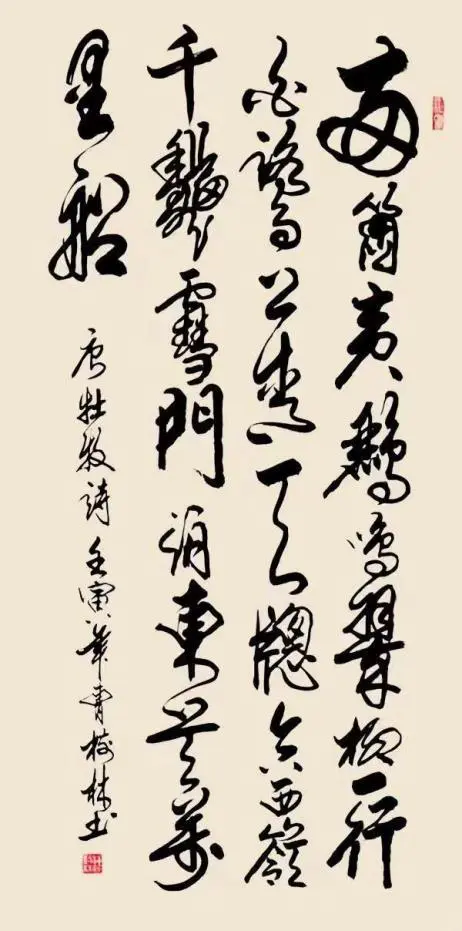 兩箇黃鸝鳴翠柳一行
白鷺上青天窗含西嶺
千龝雪門泊東吳萬
里船
唐杜牧詩壬寅年樹林書